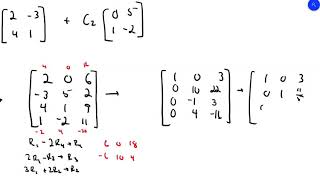 [2 -3; 4 1] + C₂ [0 5; 1 -2]
4 0 12
[2 0 6; -3 5 2; 4 1 9; 1 -2 11] → [1 0 3; 0 10 22; 0 -1 3; 0 4 -16] → [1 0 3; 0 1 11/5; 0
-2 4 -22
R₁ - 2R₄ → R₄ 6 0 18
2R₁ - R₃ → R₃ -6 10 4
3R₁ + 2R₂ → R₂